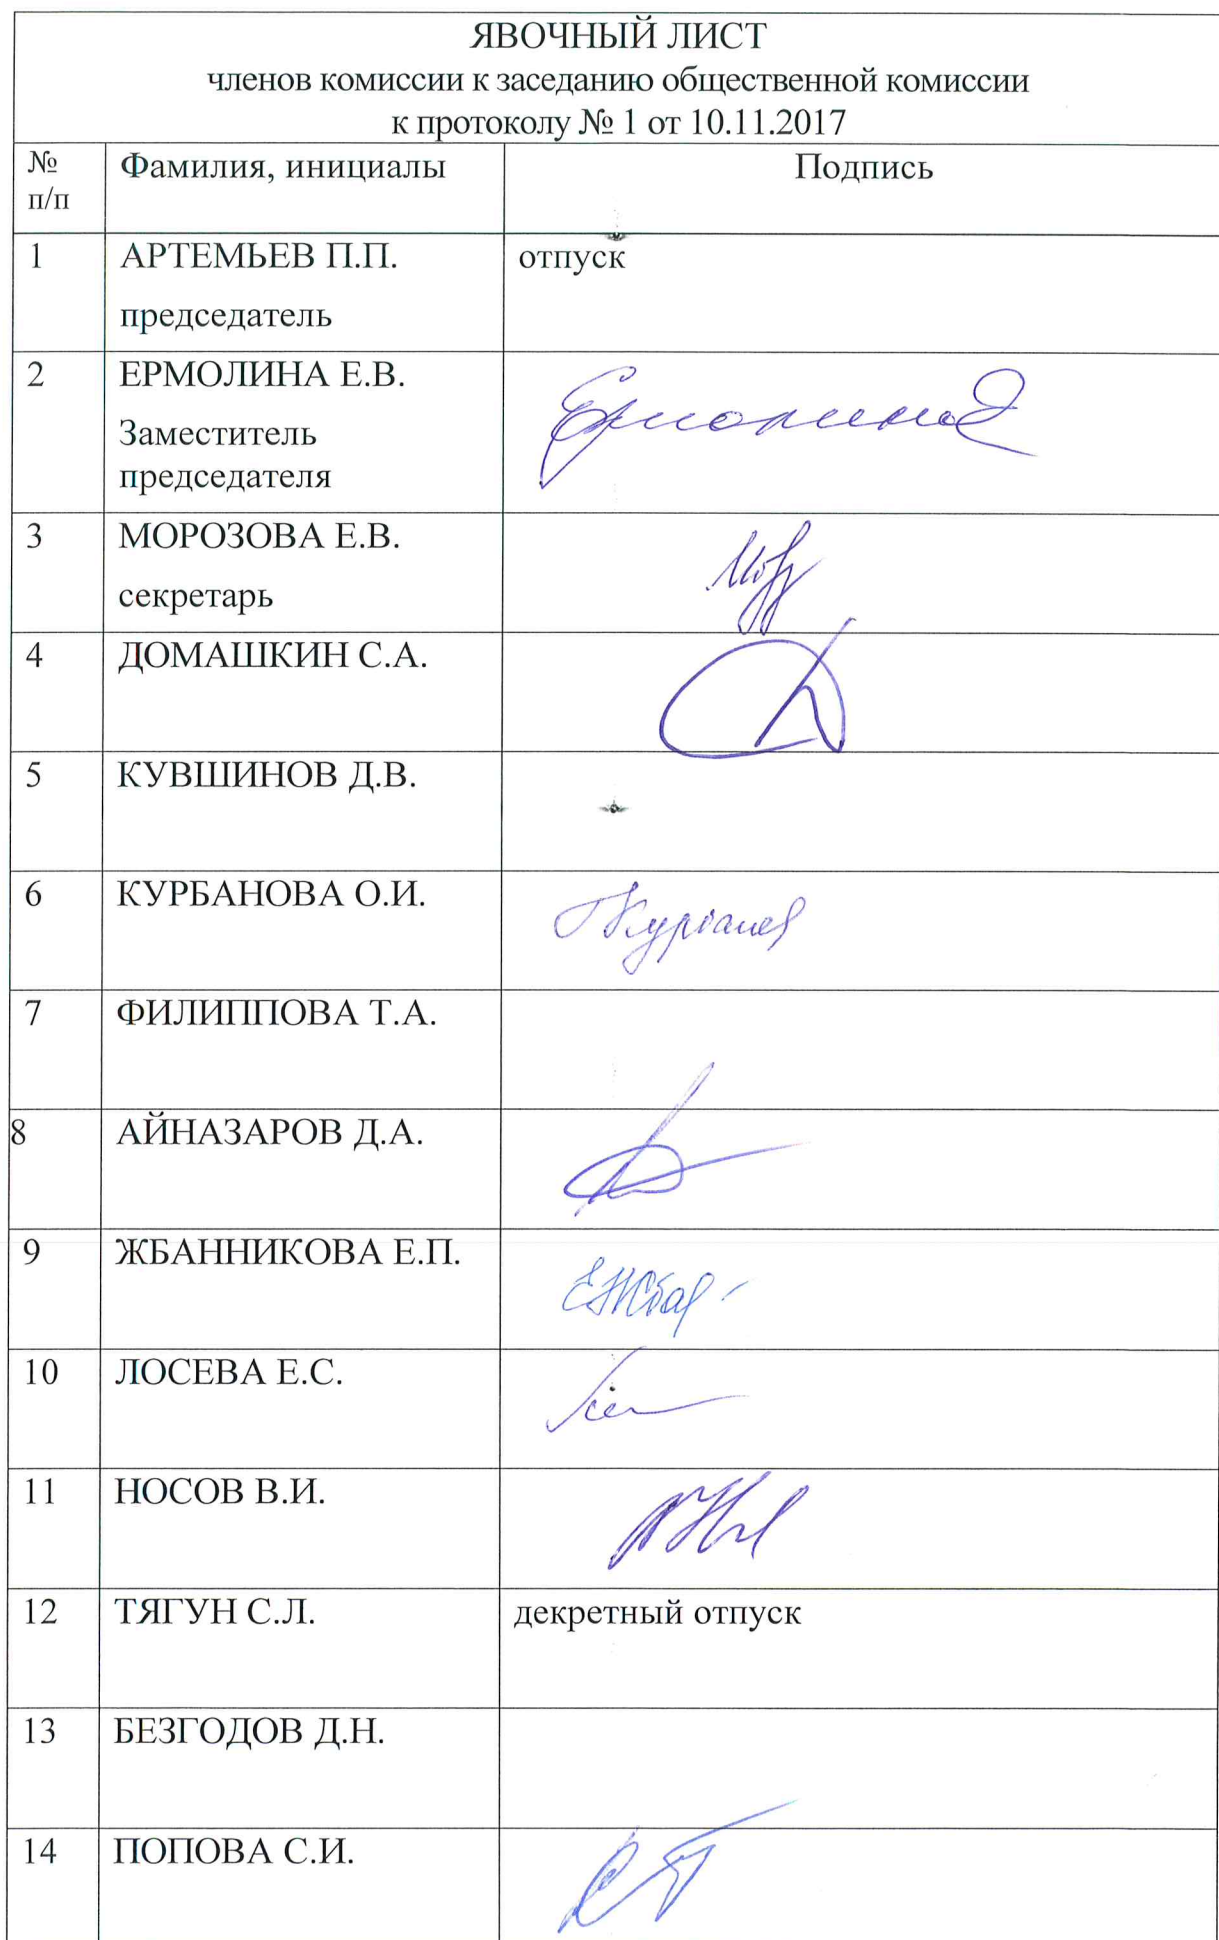 ЯВОЧНЫЙ ЛИСТ
членов комиссии к заседанию общественной комиссии
к протоколу № 1 от 10.11.2017
№ п/п Фамилия, инициалы Подпись
1 АРТЕМЬЕВ П.П. отпуск
председатель
2 ЕРМОЛИНА Е.В. Ермолина
Заместитель
председателя
3 МОРОЗОВА Е.В.
секретарь
4 ДОМАШКИН С.А.
5 КУВШИНОВ Д.В.
6 КУРБАНОВА О.И.
7 ФИЛИППОВА Т.А.
8 АЙНАЗАРОВ Д.А.
9 ЖБАННИКОВА Е.П.
10 ЛОСЕВА Е.С.
11 НОСОВ В.И.
12 ТЯГУН С.Л. декретный отпуск
13 БЕЗГОДОВ Д.Н.
14 ПОПОВА С.И.